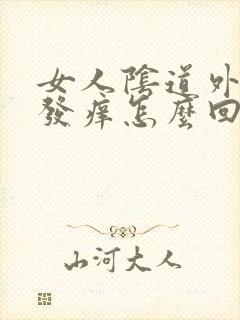 女人陰道外
發癢怎麼回
山河大人